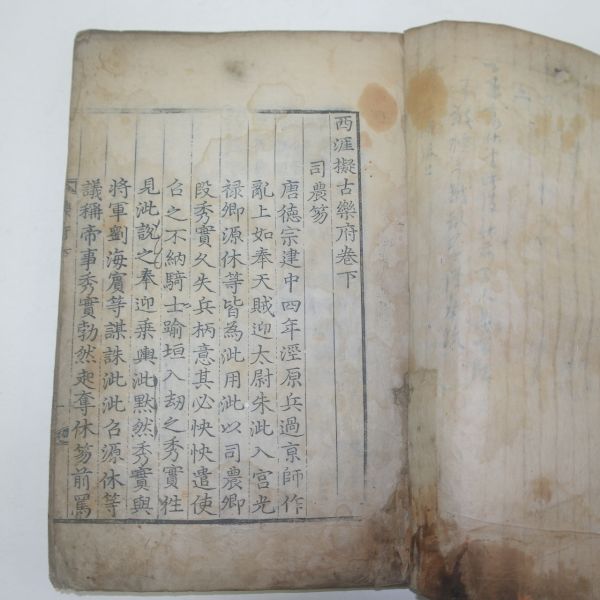 西涯擬古樂府卷下
司農笏
唐德宗建中四年涇原兵過京師作
亂上如奉天賊迎太尉朱泚入宮光
祿卿源休等皆為泚用泚以司農卿
段秀實久失兵柄意其必怏怏遣使
召之不納騎士踰垣入劫之秀實往
見泚說之奉迎乘輿泚默然秀實與
將軍劉海賓等謀誅泚泚召源休等
議稱帝事秀實勃然起奪休笏前罵
樂府下